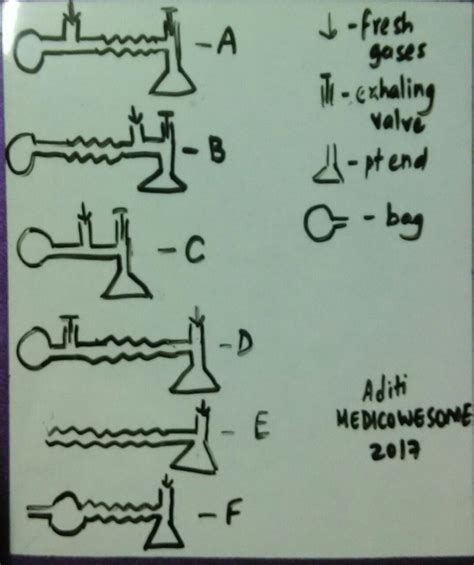 - A
- B
- C
- D
- E
- F
↓ - fresh
gases
- exhaling
valve
- pt end
- bag
Aditi
MEDICOWESOME
2017